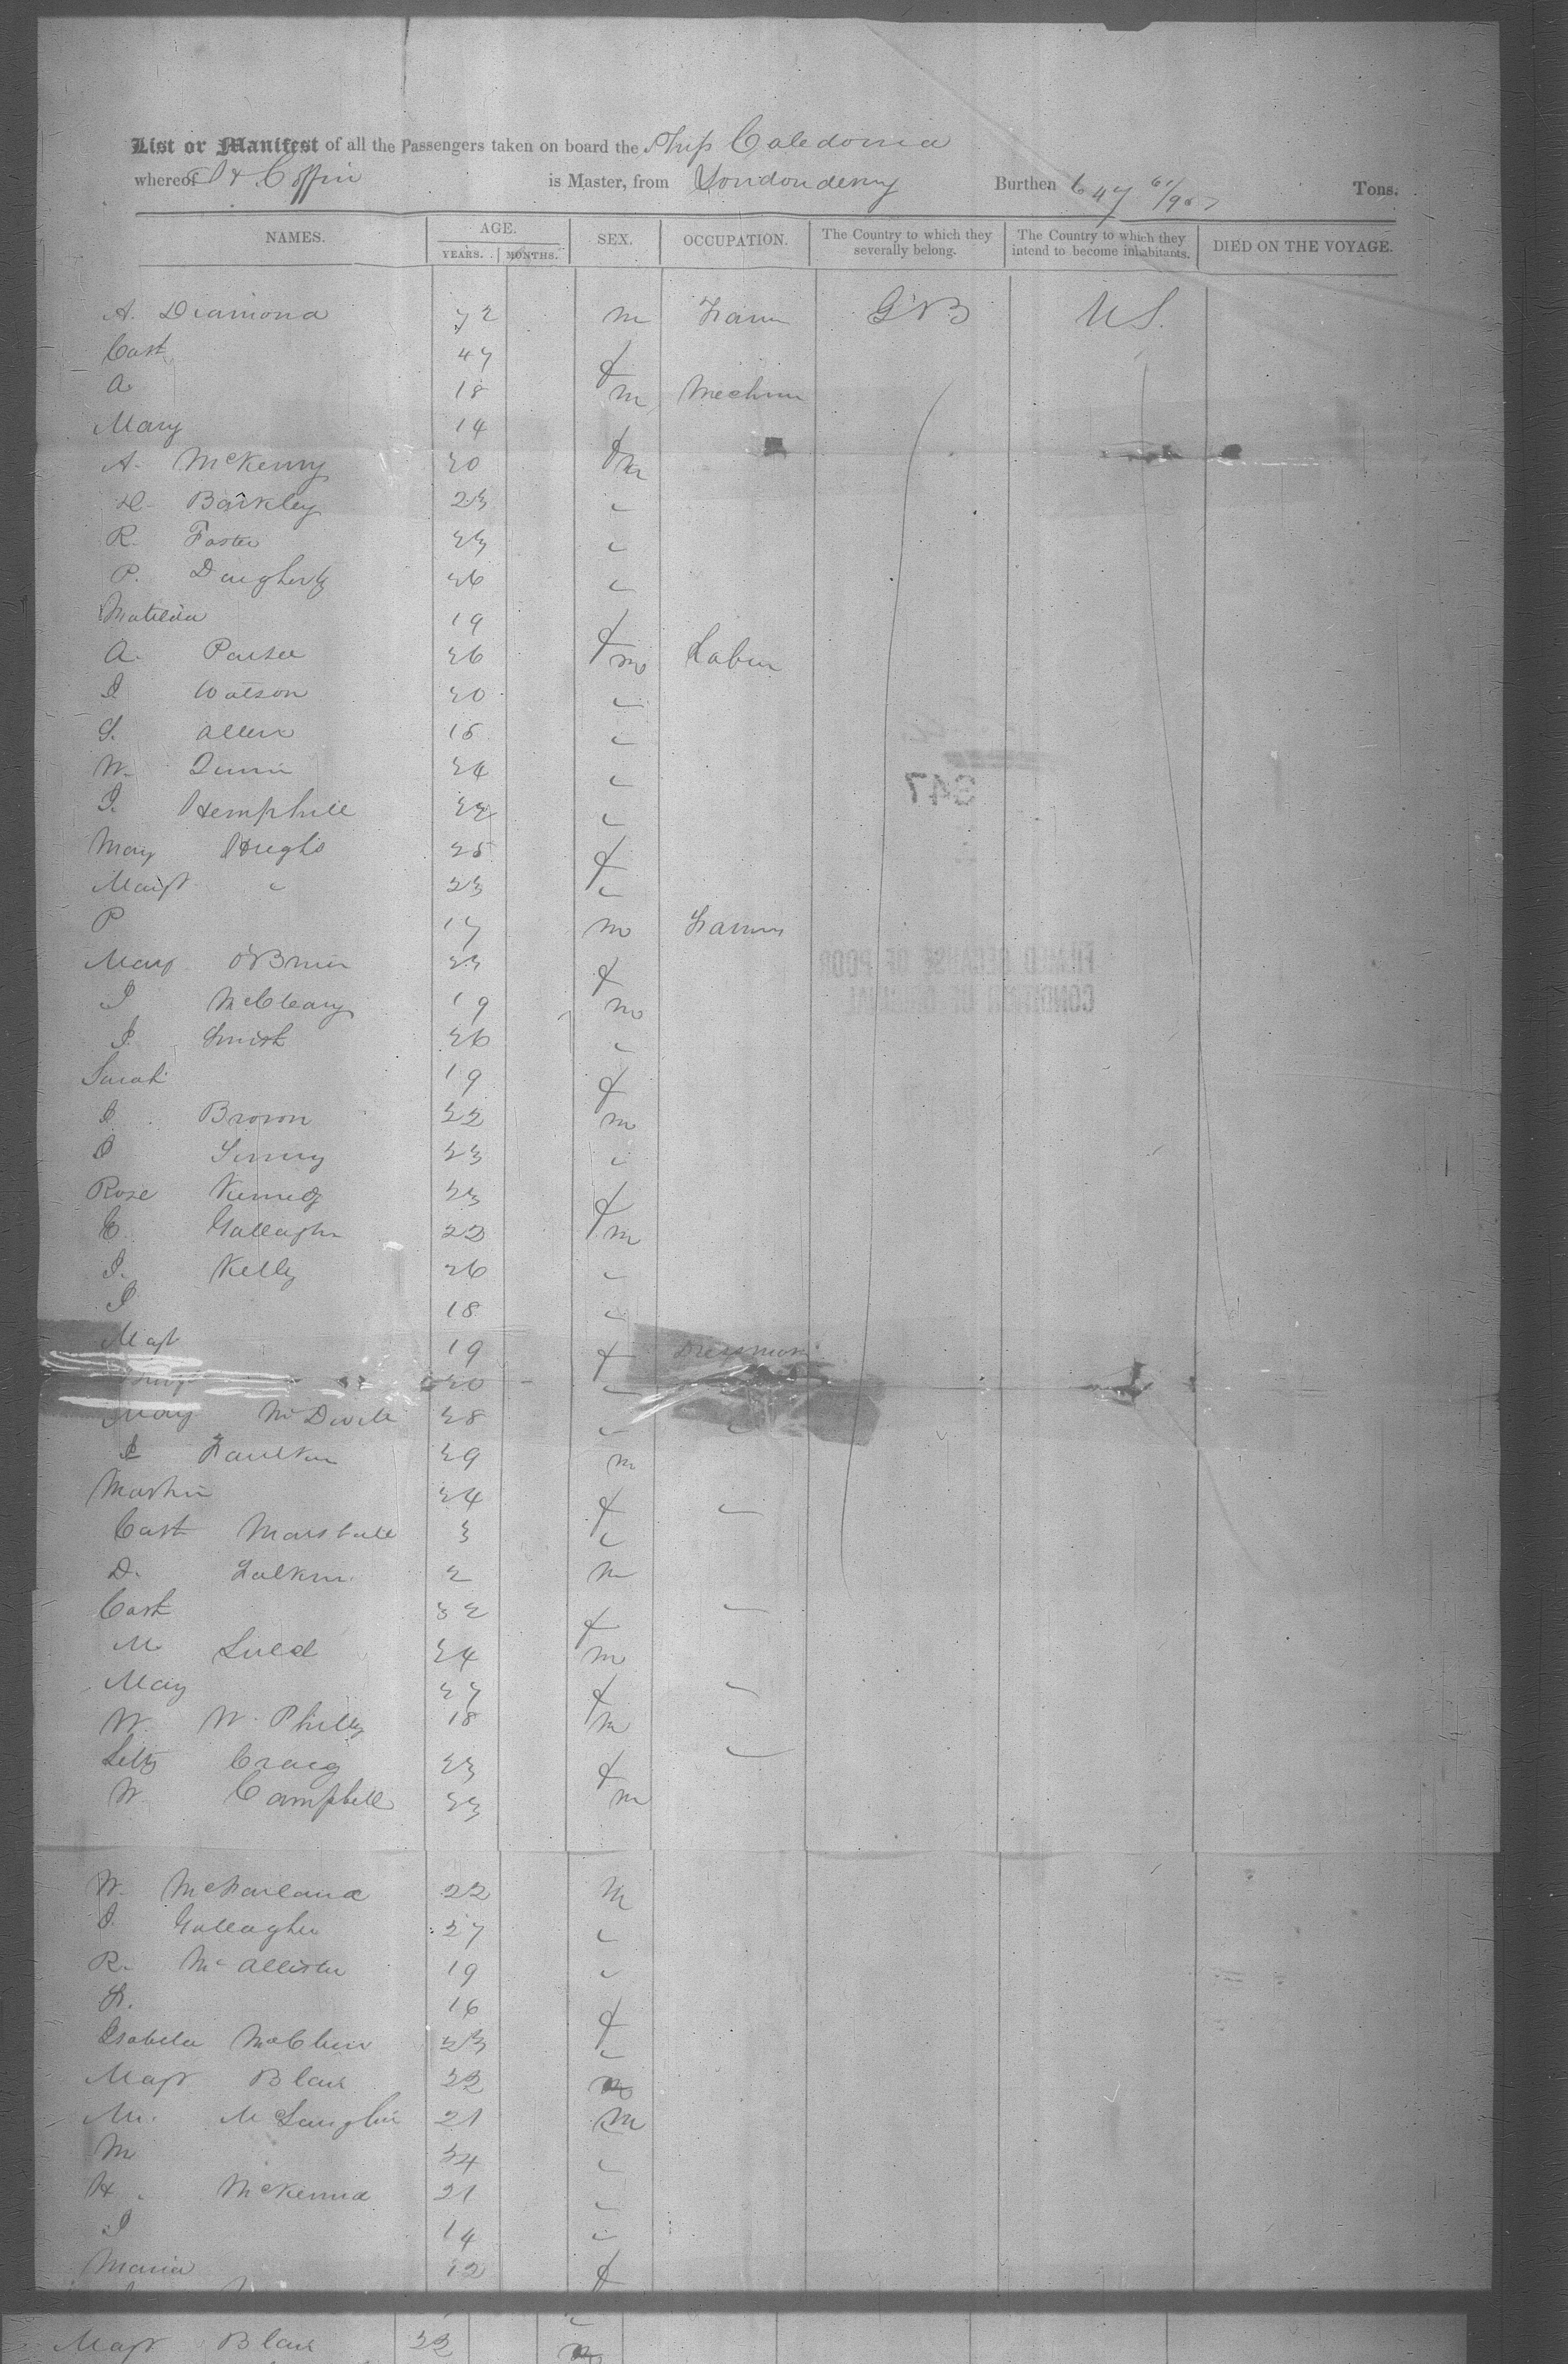 List or Manifest of all the Passengers taken on board the Ship Caledonia
whereof Coffin is Master, from Londonderry Burthen 647 Tons.
NAMES. AGE. SEX. OCCUPATION. The Country to which they severally belong. The Country to which they intend to become inhabitants. DIED ON THE VOYAGE.
YEARS. MONTHS.
A. Diamond 72 m Farm GB US.
Cath 47 f
A 18 m Mechan
Mary 14 f
A. McKenny 20 m
Barkley 23 "
R. Foster 23 "
P. Daugherty 26 "
Matilda 19 f
A. 26 m Labur
J Watson 20 "
S. Allen 15 "
W. Quinn 24 "
J. Hemphill 22 "
Mary Hughs 25 f
Margt " 23 "
P 17 m Farmer
Mary O'Brien 23 f
J McCleary 19 m
J. Smith 26 "
Sarah 19 f
J. Brown 22 m
23 "
Rose Kennedy 23 f
C. Gallagher 22 m
J. Kelly 26 "
J 18 "
Magt 19 f
20 "
Mary McDevitt 28 " "
J Faulkner 29 m
24 f "
Cath Marshall 3 "
D. 2 m
Cath 32 f "
M 24 m
Mary 27 f "
W. 18 m
Letty Craig 23 f "
W. Campbell 23 m
W. McFarland 22 m
J. Gallagher 27 "
R. McAllister 19 "
16 f
Isabella McClure 23 "
Magt Blair 22
M. McLaughlin 21 m
M 24 "
H. McKenna 21 "
J 14 "
Maria 12 f
Magt Blair 22